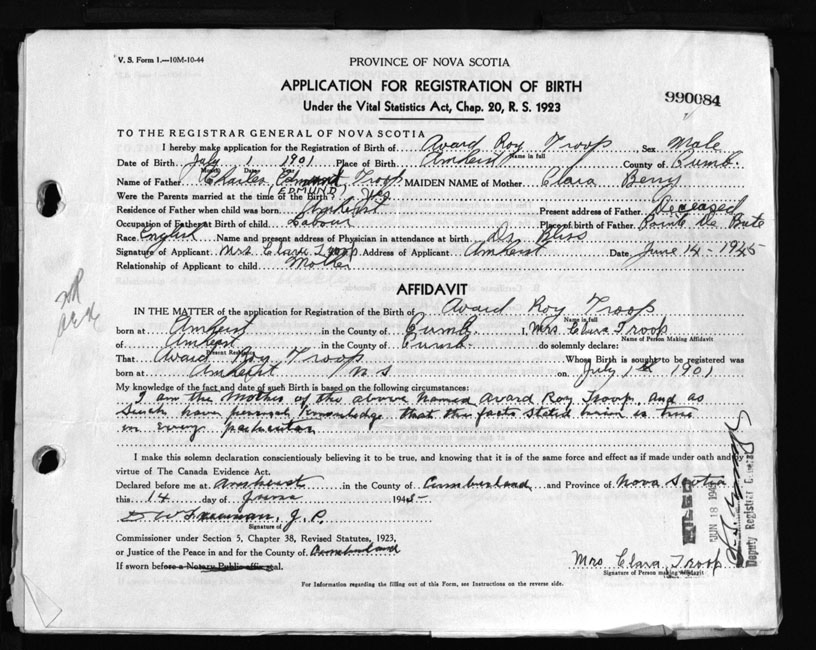 V. S. Form 1.—10M-10-44
PROVINCE OF NOVA SCOTIA
APPLICATION FOR REGISTRATION OF BIRTH
990084
Under the Vital Statistics Act, Chap. 20, R. S. 1923
TO THE REGISTRAR GENERAL OF NOVA SCOTIA
I hereby make application for the Registration of Birth of Avard Roy Troop Sex Male
Name in full
Date of Birth July 1 1901 Place of Birth Amherst County of Cumb.
Name of Father Charles Edmund Troop MAIDEN NAME of Mother Clara Berry
(EDMUND)
Were the Parents married at the time of the Birth? Yes
Residence of Father when child was born Amherst Present address of Father Deceased
Occupation of Father at Birth of child Labour Place of birth of Father Pointe De Bute
Race English Name and present address of Physician in attendance at birth Dr Bliss
Signature of Applicant Mrs Clara Troop Address of Applicant Amherst Date June 14 - 1945
Relationship of Applicant to child Mother
AFFIDAVIT
IN THE MATTER of the application for Registration of the Birth of Avard Roy Troop
Name in full
born at Amherst in the County of Cumb. I, Mrs Clara Troop
Name of Person Making Affidavit
of Amherst in the County of Cumb. do solemnly declare:
Present Residence
That Avard Roy Troop Whose Birth is sought to be registered was
born at Amherst N S on July 1st 1901
My knowledge of the fact and date of such Birth is based on the following circumstances:
I am the Mother of the above named Avard Roy Troop. And as
such have personal knowledge that the facts stated herin is true
in every particular
I make this solemn declaration conscientiously believing it to be true, and knowing that it is of the same force and effect as if made under oath and by
virtue of The Canada Evidence Act.
Declared before me at Amherst in the County of Cumberland and Province of Nova Scotia
this 14 day of June 1945
D W Freeman, J. P.
Signature of
Commissioner under Section 5, Chapter 38, Revised Statutes, 1923,
or Justice of the Peace in and for the County of Cumberland
If sworn before a Notary Public affix seal.
Mrs Clara Troop
Signature of Person making Affidavit
For Information regarding the filling out of this Form, see Instructions on the reverse side.
FILED
JUN 18 1945
Deputy Registrar General